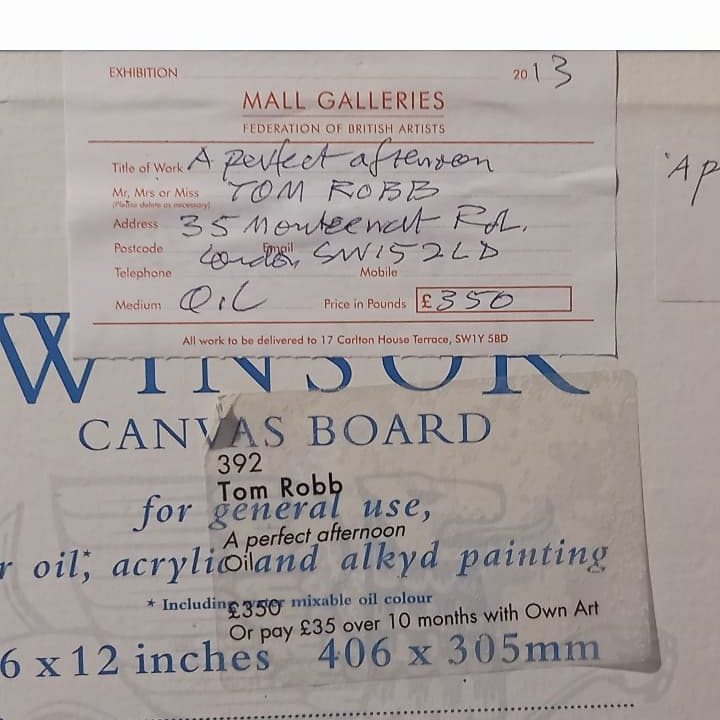 EXHIBITION 2013
MALL GALLERIES
FEDERATION OF BRITISH ARTISTS
Title of Work A perfect afternoon
Mr, Mrs or Miss TOM ROBB
(Please delete as necessary)
Address 35 Rd.
Postcode London, Email SW15 2LD
Telephone Mobile
Medium OIL Price in Pounds £350
All work to be delivered to 17 Carlton House Terrace, SW1Y 5BD
'A p
WINSOR
CANVAS BOARD
392
Tom Robb
for general use,
A perfect afternoon
Oil
r oil*, acrylic and alkyd painting
* Including water mixable oil colour
£350
Or pay £35 over 10 months with Own Art
6 x 12 inches 406 x 305mm